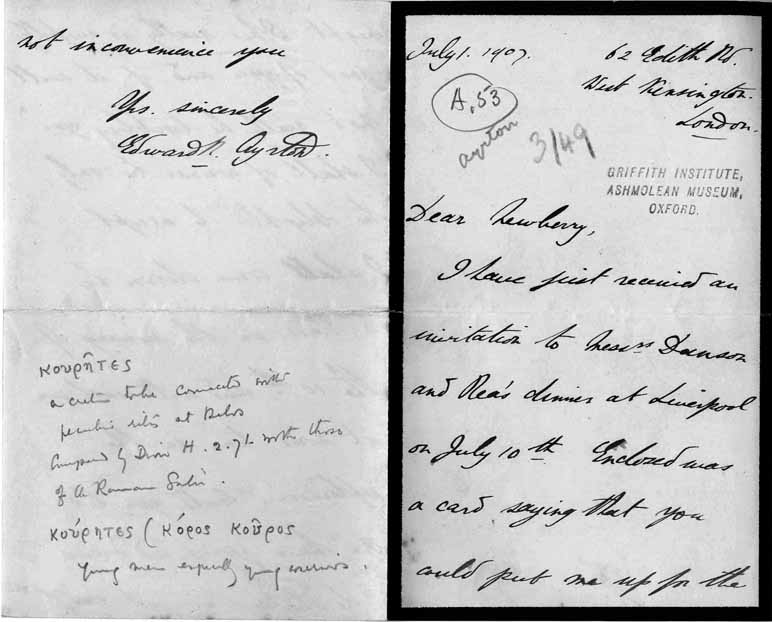 not inconvenience you
Yrs. sincerely
Edward R. Ayrton.
κουρῆτες
to be connected with
peculiar rites at Delos
Compared by Dion H. 2.71 with those
of a Roman Salii.
κούρητες ( κόρος κοῦρος
young men especially young warriors.
July 1. 1907.
62 Edith Rd.
West Kensington.
London.
A.53
Ayrton
3/49
GRIFFITH INSTITUTE,
ASHMOLEAN MUSEUM,
OXFORD.
Dear Newberry,
I have just received an
invitation to Messrs Danson
and Rea's dinner at Liverpool
on July 10th. Enclosed was
a card saying that you
could put me up for the